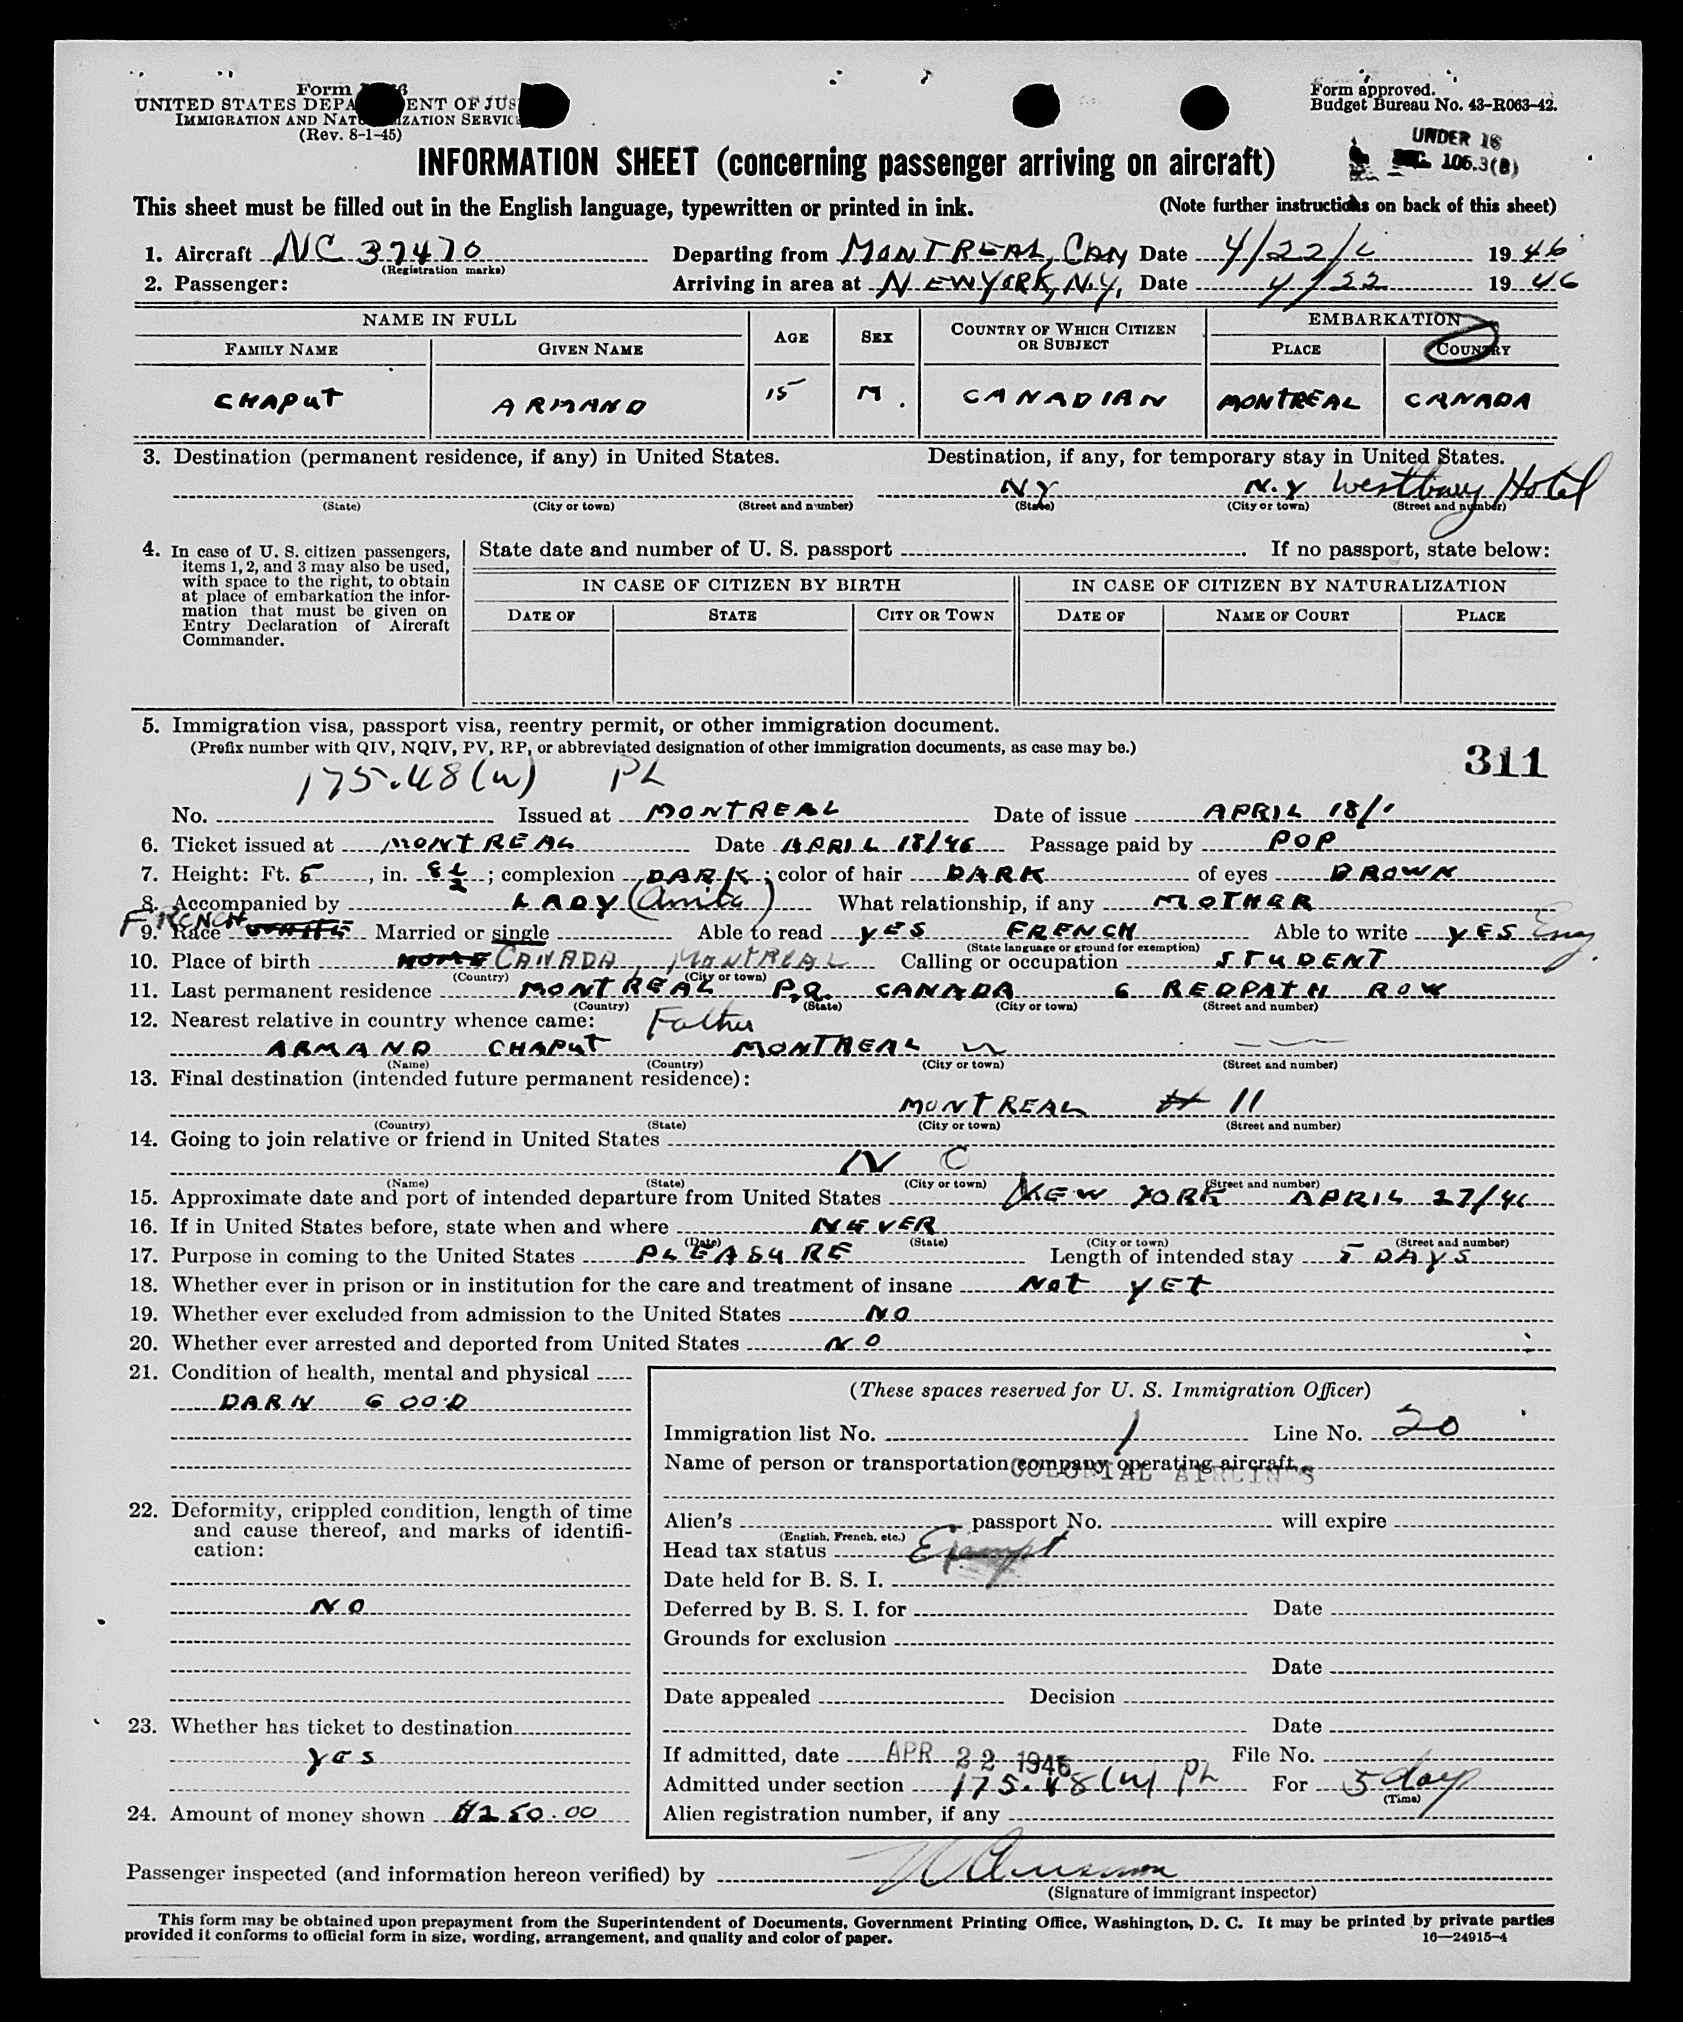 Form
Form approved.
UNITED STATES DEPA ENT OF JUS
Budget Bureau No. 43-R063-42.
IMMIGRATION AND NAT IZATION SERVIC
(Rev. 8-1-45)
UNDER 16
SEC. 105.3(B)
INFORMATION SHEET (concerning passenger arriving on aircraft)
This sheet must be filled out in the English language, typewritten or printed in ink. (Note further instructions on back of this sheet)
1. Aircraft NC 37470 Departing from MONTREAL, CAN Date 4/22/ 1946
(Registration marks)
2. Passenger: Arriving in area at NEW YORK, N.Y, Date 4/22 1946
NAME IN FULL AGE SEX COUNTRY OF WHICH CITIZEN OR SUBJECT EMBARKATION
FAMILY NAME GIVEN NAME PLACE COUNTRY
CHAPUT ARMAND 15 M. CANADIAN MONTREAL CANADA
3. Destination (permanent residence, if any) in United States. Destination, if any, for temporary stay in United States.
NY N.Y Westbury Hotel
(State) (City or town) (Street and number) (State) (City or town) (Street and number)
4. In case of U. S. citizen passengers, items 1, 2, and 3 may also be used, with space to the right, to obtain at place of embarkation the information that must be given on Entry Declaration of Aircraft Commander.
State date and number of U. S. passport . If no passport, state below:
IN CASE OF CITIZEN BY BIRTH IN CASE OF CITIZEN BY NATURALIZATION
DATE OF STATE CITY OR TOWN DATE OF NAME OF COURT PLACE
5. Immigration visa, passport visa, reentry permit, or other immigration document.
(Prefix number with QIV, NQIV, PV, RP, or abbreviated designation of other immigration documents, as case may be.)
311
175.48(w) PL
No. Issued at MONTREAL Date of issue APRIL 18/
6. Ticket issued at MONTREAL Date APRIL 18/46 Passage paid by POP
7. Height: Ft. 5, in. 8 1/2; complexion DARK; color of hair DARK of eyes BROWN
8. Accompanied by LADY (Anita) What relationship, if any MOTHER
9. Race FRENCH WHITE Married or single Able to read YES FRENCH Able to write YES Eng.
(State language or ground for exemption)
10. Place of birth HOME CANADA, MONTREAL Calling or occupation STUDENT
(Country) (City or town)
11. Last permanent residence MONTREAL P.Q. CANADA 6 REDPATH ROW
(Country) (State) (City or town) (Street and number)
12. Nearest relative in country whence came: Father
ARMAND CHAPUT MONTREAL
(Name) (Country) (City or town) (Street and number)
13. Final destination (intended future permanent residence):
MONTREAL # 11
(Country) (State) (City or town) (Street and number)
14. Going to join relative or friend in United States
N C
(Name) (State) (City or town) (Street and number)
15. Approximate date and port of intended departure from United States NEW YORK APRIL 27/46
16. If in United States before, state when and where NEVER
(Date) (State) (City or town) (Street and number)
17. Purpose in coming to the United States PLEASURE Length of intended stay 5 DAYS
18. Whether ever in prison or in institution for the care and treatment of insane NOT YET
19. Whether ever excluded from admission to the United States NO
20. Whether ever arrested and deported from United States NO
21. Condition of health, mental and physical
DARN GOOD
22. Deformity, crippled condition, length of time and cause thereof, and marks of identification:
NO
23. Whether has ticket to destination
YES
24. Amount of money shown $250.00
(These spaces reserved for U. S. Immigration Officer)
Immigration list No. 1 Line No. 20
Name of person or transportation company operating aircraft
COLONIAL AIRLINES
Alien's passport No. will expire
(English, French, etc.)
Head tax status Exempt
Date held for B. S. I.
Deferred by B. S. I. for Date
Grounds for exclusion
Date
Date appealed Decision
Date
If admitted, date APR 22 1946 File No.
Admitted under section 175.48(w) PL For 5 days
(Time)
Alien registration number, if any
Passenger inspected (and information hereon verified) by
(Signature of immigrant inspector)
This form may be obtained upon prepayment from the Superintendent of Documents, Government Printing Office, Washington, D. C. It may be printed by private parties
provided it conforms to official form in size, wording, arrangement, and quality and color of paper. 16—24915-4